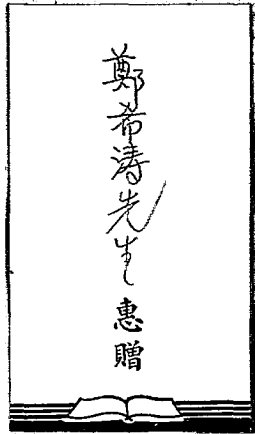 鄭希涛先生惠贈